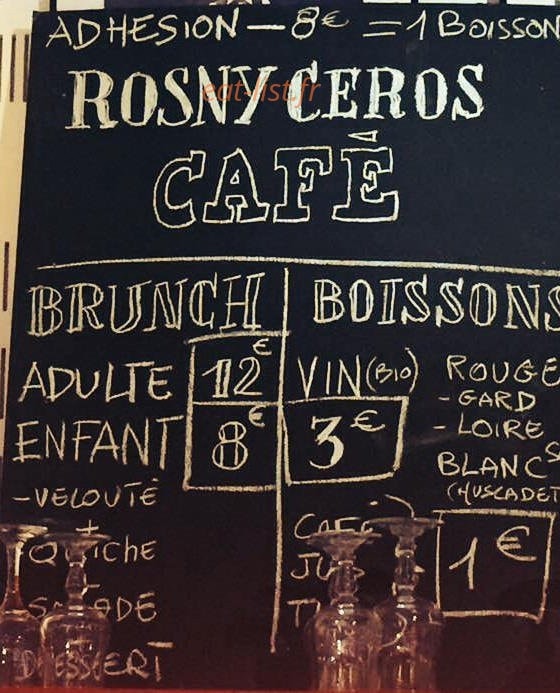 ADHESION — 8€ = 1 BOISSON
ROSNY CEROS
eat-list.fr
CAFÉ
BRUNCH
ADULTE 12€
ENFANT 8€
- VELOUTÉ
+
QUICHE
+
SALADE
+
DESSERT
BOISSONS
VIN (BIO)
3€
ROUGE
- GARD
- LOIRE
BLANC
(MUSCADET
CAFÉ
1€